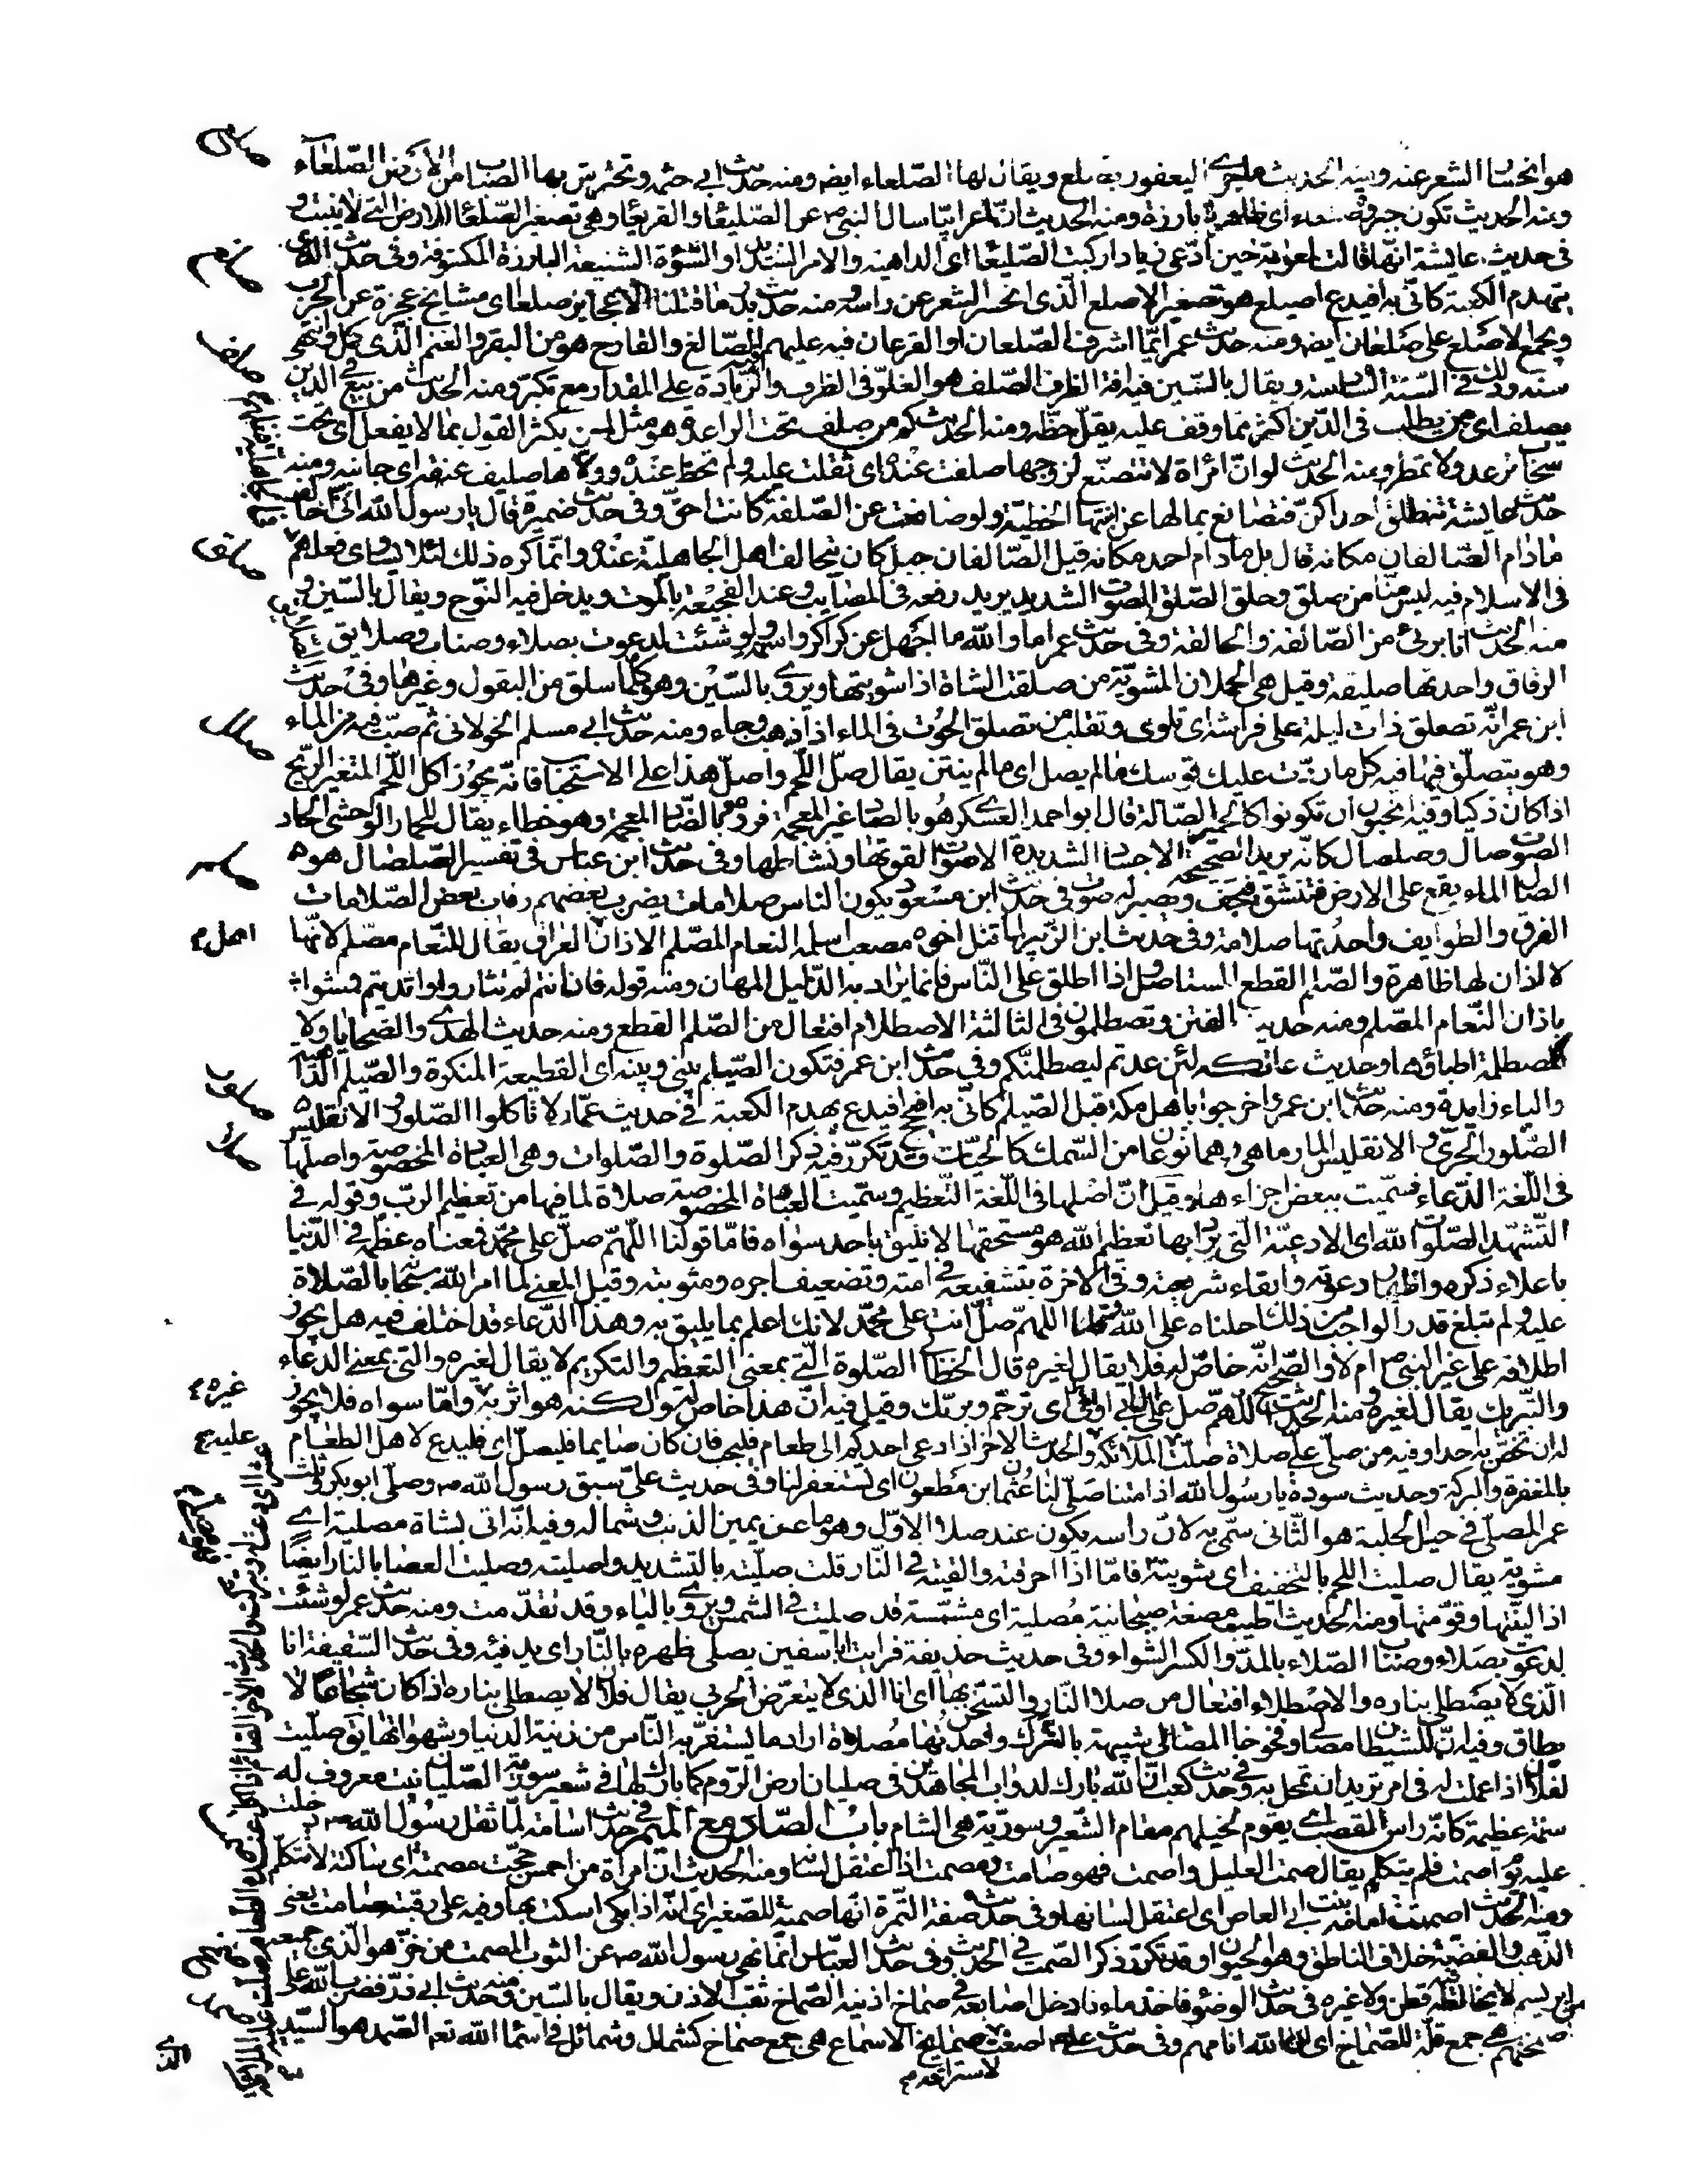 هو انحسار الشعر عنه ومنه الحديث ما جرى اليعفور بصلع ويقال لها الصلعاء ايضا ومنه حديث ابى حثمه وتحترش بها الضباب من الارض الصلعاء
ومنه الحديث تكون جبروة صلعاء اى ظاهرة بارزة ومنه الحديث ان اعرابيا سال النبى ص عن الصليعاء والقريعاء وهى تصغير الصلعاء للارض التى لا ينبت و
فى حديث عايشة انها قالت لمعوية حين ادعى زيادا ركبت الصليعاء اى الداهيه والامر الشديد او السؤة الشنيعة البارزة المكشوفة وفى حديث الذى
يهدم الكعبة كانى به افيدع اصيلع هو تصغير الاصلع الذى انحسر الشعر عن راسه ومنه حديث بدر ما قتلنا الا عجايز صلعا اى مشايخ عجزة عن الحرب
ويجمع الاصلع على صلعان ايضا ومنه حديث عمر ايما اشرف الصلعان او الفرعان فيه عليهم الصالغ والقارح هو من البقر والغنم الذى كمل وانتهى
سنه وذلك فى السنة السادسة ويقال بالسين فيه افة الظرف الصلف هو الغلو فى الظرف والزيادة على المقدار مع تكبر ومنه الحديث من يبغ فى الدين
يصلف اى من يطلب فى الدين اكثر مما وقف عليه يقل حظه ومنه الحديث كم من صلف تحت الراعدة هو مثل لمن يكثر القول بما لا يفعل اى تحت
سحاب ترعد ولا تمطر ومنه الحديث لو ان امراة لا تتصنع لزوجها صلفت عنده اى ثقلت عليه ولم تحظ عنده وولاها صليف عنقه اى جانبه ومنه
حديث عايشة تنطلق احداكن فتصانع بمالها عن ابنتها الحظية ولو صانعت عن الصلفة كانت احق وفى حديث ضميرة قال يا رسول الله انى احالف
ما دام الصالفان مكانه قال بل ما دام احد مكانه قيل الصالف جبل كان يتحالف اهل الجاهلية عنده وانما كره ذلك لئلا يساوى فعلهم
فى الاسلام فيه ليس منا من صلق وحلق الصلق الصوت الشديد يريد رفعه فى المصايب وعند الفجيعة بالموت ويدخل فيه النوح ويقال بالسين و
منه الحديث انا برئ من الصالقة والحالقة وفى حديث عمر اما والله ما اجهل عن كراكر واسنمة ولو شئت لدعوت بصلاء وصناب وصلايق
الرقاق واحدتها صليقة وقيل هى الحملان المشوية من صلقت الشاة اذا شويتها ويروى بالسين وهو كلما سلق من البقول وغيرها وفى حديث
ابن عمر انه تصلق ذات ليلة على فراشه اى تلوى وتقلب من تصلق الحوت فى الماء اذا ذهب وجاء ومنه حديث ابى مسلم الخولانى ثم صب فيه من الماء
وهو يتصلق فيها فيه كل ما ردت عليك قوسك ما لم يصل اى ما لم ينتن يقال صل اللحم واصل هذا على الاستحباب فانه يجوز اكل اللحم المتغير الريح
اذا كان ذكيا وفيه اتحبون ان تكونوا كالحمير الصالة قال ابو احمد العسكرى هو بالصاد غير المعجمة فرووه بالضاد المعجمة وهو خطاء يقال للحمار الوحشى الحاد
الصوت صال وصلصال كانه يريد الصحيحة الاجساد الشديدة الاصوات لقوتها ونشاطها وفى حديث ابن عباس فى تفسير الصلصال هو
الصال الماء يقع على الارض فتنشق فيجف ويصير له صوت فى حديث ابن مسعود يكون الناس صلامات يضرب بعضهم رقاب بعض الصلامات
الفرق والطوايف واحدتها صلامة وفى حديث ابن الزبير لما قتل اخوه مصعب اسلمه النعام المصلم الاذان اهل العراق يقال للنعام مصلم لانها
لا اذان لها ظاهرة والصلم القطع المستاصل واذا اطلق على الناس فانما يراد به الذليل المهان ومنه قوله فان انتم لم تثاروا واتديتم فمشوا
باذان النعام المصلم ومنه حديث الفتن وتصطلمون فى الثالثة الاصطلام افتعال من الصلم القطع ومنه حديث الهدى والضحايا ولا
المصطلمة اطباؤها وحديث عاتكه لئن عدتم ليصطلمنكم وفى حديث ابن عمر فتكون الصيلم بينى وبينه اى القطيعة المنكرة والصيلم الداهية
والياء زايدة ومنه حديث ابن عمرو اخرجوا يا اهل مكة قبل الصيلم كانى به افيحج افيدع يهدم الكعبة فى حديث عمار لا تاكلوا الصلور والانقليس
الصلور الجرى والانقليس المارماهى وهما نوعان من السمك كالحيات قد تكرر فيه ذكر الصلوة والصلوات وهى العبادة المخصوصة واصلها
فى اللغة الدعاء فسميت ببعض اجزاءها وقيل ان اصلها فى اللغة التعظيم وسميت العبادة المخصوصة صلاة لما فيها من تعظيم الرب وقوله فى
التشهد الصلوات لله اى الادعية التى يراد بها تعظيم الله هو مستحقها لا تليق باحد سواه فاما قولنا اللهم صل على محمد فمعناه عظمه فى الدنيا
باعلاء ذكره واظهار دعوته وابقاء شريعته وفى الاخرة بتشفيعه فى امته وتضعيف اجره ومثوبته وقيل المعنى لما امر الله سبحانه بالصلاة
عليه ولم تبلغ قدر الواجب من ذلك احلناه على الله وقلنا اللهم صل انت على محمد لانك اعلم بما يليق به وهذا الدعاء قد اختلف فيه هل يجوز
اطلاقه على غير النبى ص ام لا والصحيح انه خاص له فلا يقال لغيره قال الخطابى الصلوة التى بمعنى التعظيم والتكريم لا يقال لغيره والتى بمعنى الدعاء
والتبريك يقال لغيره ومنه الحديث اللهم صل على ال ابى اوفى اى ترحم وبرك وقيل فيه ان هذا خاص له ولكنه هو اثر به واما سواه فلا يجوز
له ان يخص به احدا وفيه من صلى على صلاة صلت عليه الملائكة والحديث الاخر اذا دعى احدكم الى طعام فليجب فان كان صايما فليصل اى فليدع لاهل الطعام
بالمغفرة والبركة وحديث سودة يا رسول الله اذا متنا صلى لنا عثمان ابن مظعون اى يستغفر لنا وفى حديث على سبق رسول الله ص وصلى ابو بكر وثلث
عمر المصلى فى خيل الحلبة هو الثانى سمى به لان راسه يكون عند صلا الاول وهو ما عن يمين الذنب وشماله وفيه انه اتى بشاة مصلية اى
مشوية يقال صليت اللحم بالتخفيف اى شويته فاما اذا احرقته والقيته فى النار قلت صليته بالتشديد واصليته وصليت العصا بالنار ايضا
اذا لينتها وقومتها ومنه الحديث اطيب مضغة صيحانية مصلية اى مشمسة قد صليت فى الشمس ويروى بالباء وقد تقدمت ومنه حديث عمر لو شئت
لدعوت بصلاء وصناب الصلاء بالمد والكسر الشواء وفى حديث حذيفة فرايت ابا سفين يصلى ظهره بالنار اى يدفئه وفى حديث السقيفة انا
الذى لا يصطلى بناره والاصطلاء افتعال من صلا النار والتسخن بها اى انا الذى لا يتعرض لحربى يقال فلان لا يصطلى بناره اذا كان شجاعا لا
يطاق وفيه ان للشيطان مصالى وفخوخا المصالى شبيهة بالشرك واحدتها مصلاة اراد ما يستفز به الناس من زينة الدنيا وشهواتها يقال صليت
لفلان اذا عملت له فى امر تريد ان تمحل به وفى حديث كعب ان الله بارك لدواب المجاهدين فى صليان ارض الروم كما بارك لها فى شعير سورية الصليان نبت معروف له
سنمة عظيمة كانه راس القصب اى يقوم لخيلهم مقام الشعير وسورية هى الشام باب الصاد مع الميم فى حديث اسامة لما ثقل رسول الله ص دخلت
عليه يوم اصمت فلم يتكلم يقال صمت العليل واصمت فهو صامت ومصمت اذا اعتقل لسانه ومنه الحديث ان امراة من احمس حجت مصمتة اى ساكتة لا تتكلم
ومنه الحديث اصمتت امامة بنت ابى العاص اى اعتقل لسانها وفى حديث صفة التمرة انها صمتة للصغير اى انه اذا بكى اسكت بها وفيه على رقبته صامت يعنى
الذهب والفضة خلاف الناطق وهو الحيوان وقد تكرر ذكر الصمت فى الحديث وفى حديث العباس انما نهى رسول الله ص عن الثوب المصمت من خز هو الذى جميعه
ابريسم لا يخالطه قطن ولا غيره فى حديث الوضوء فاخذ ماء فادخل اصابعه فى صماخ اذنيه الصماخ ثقب الاذن ويقال بالسين ومنه حديث ابى ذر فضرب الله على
اصمختهم هى جمع قلة للصماخ اى ان الله انامهم وفى حديث على ع اصغت لاستراقه صمايخ الاسماع هى جمع صماخ كشملل وشمائل فى اسماء الله تعالى الصمد هو السيد
الذى
صلغ
صلف
صلق
صلل
صلم
اهل
صلور
صلا
غيره
عليه
صمت
صمخ
صمد